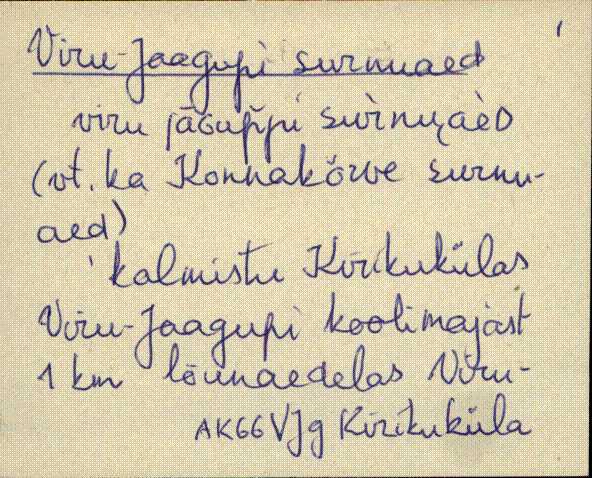 Viru-Jaagupi surnuaed
viru jāGup̆pi sùrnu̯aèD
(vt. ka Konnakõrve surnu-
aed)
kalmistu Kirikukülas
Viru-Jaagupi koolimajast
1 km lõunaedelas Viru-
AK66 VJg Kirikuküla